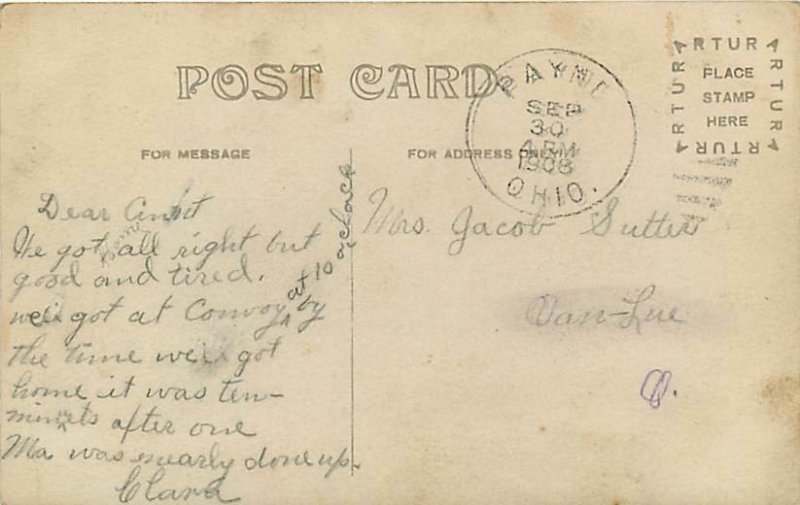 POST CARD
FOR MESSAGE
FOR ADDRESS ONLY
PAYNE
SEP
30
4 PM
1908
OHIO.
ARTURA
ARTURA
ARTURA
ARTURA
PLACE
STAMP
HERE
Dear Aunt
We got home all right but
good and tired.
we got at Convoy at 10 o'clock by
the time we got
home it was ten
minuts after one
Ma was nearly done up.
Clara
Mrs. Jacob Sutter
Van-Lue
O.